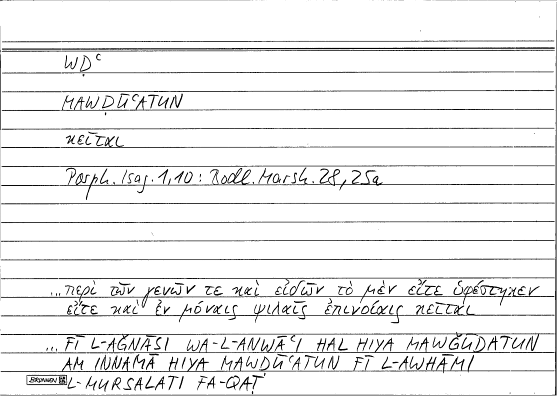 WḌʿ
MAWḌŪʿATUN
κεῖται
Porph. Isag. 1,10: Bodl. Marsh. 28, 25a
... περὶ τῶν γενῶν τε καὶ εἰδῶν τὸ μὲν εἴτε ὑφέστηκεν
εἴτε καὶ ἐν μόναις ψιλαῖς ἐπινοίαις κεῖται
... FĪ L-AǦNĀSI WA-L-ANWĀʿI HAL HIYA MAWǦŪDATUN
AM INNAMĀ HIYA MAWḌŪʿATUN FĪ L-AWHĀMI
BRUNNEN L-MURSALATI FA-QAṬ